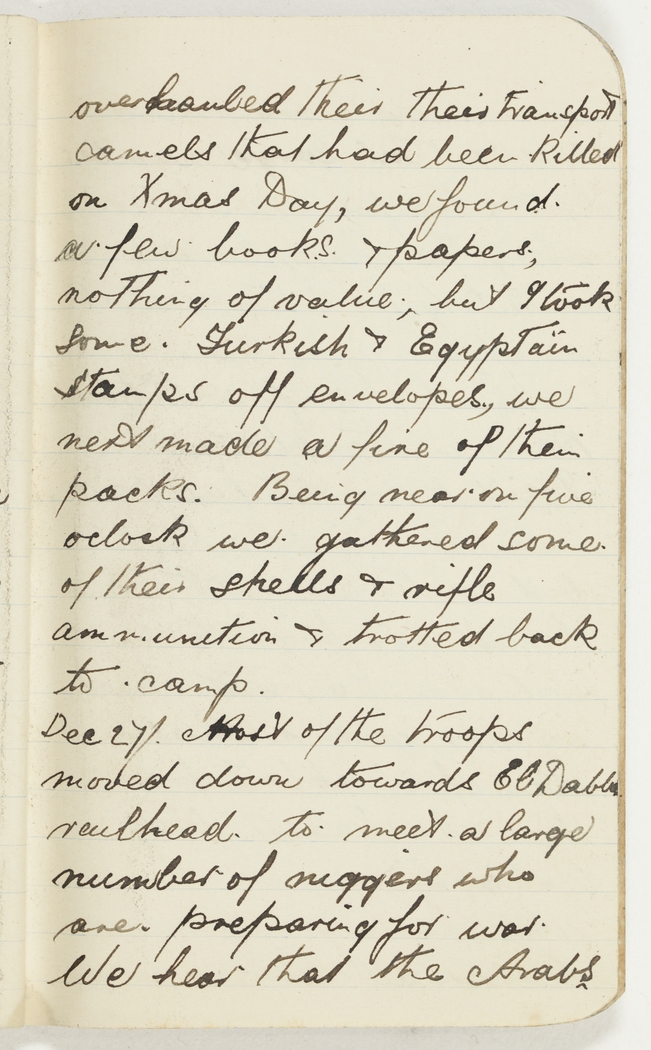 overhaubed their their transport
camels that had been killed
on Xmas Day, we found.
a few books. & papers,
nothing of value, but I took
some. Turkish & Egyptain
stamps off envelopes, we
next made a fire of their
packs. Being near on five
oclock we. gathered some.
of their shells & rifle
ammunition & trotted back
to camp.
Dec 27/. Most of the troops
moved down towards El Dabba
railhead. to meet a large
number of niggers who
are. preparing for war.
We hear that the Arabs